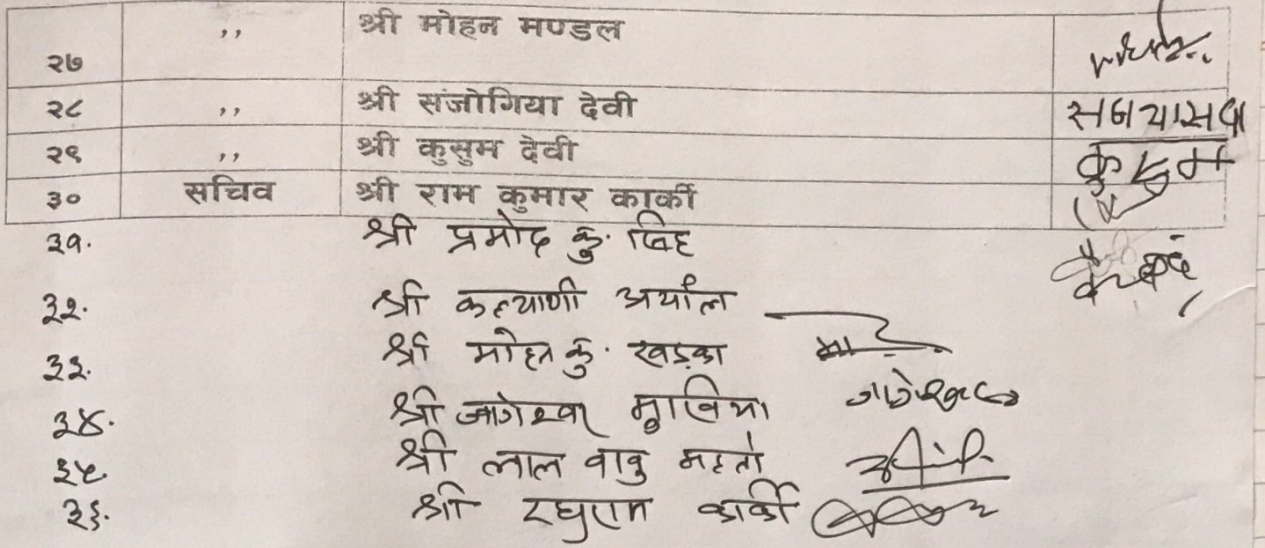 २७ ,, श्री मोहन मण्डल
२८ ,, श्री संजोगिया देवी
२९ ,, श्री कुसुम देवी कुसुम
३० सचिव श्री राम कुमार कार्की
३१. श्री प्रमोद कु. सिंह
३२. श्री कल्याणी अर्याल
३३. श्री मोहन कु. खड्का
३४. श्री जागेश्वर मुखिया जागेश्वर
३५. श्री लाल वावु महतो
३६. श्री रघुराम कार्की